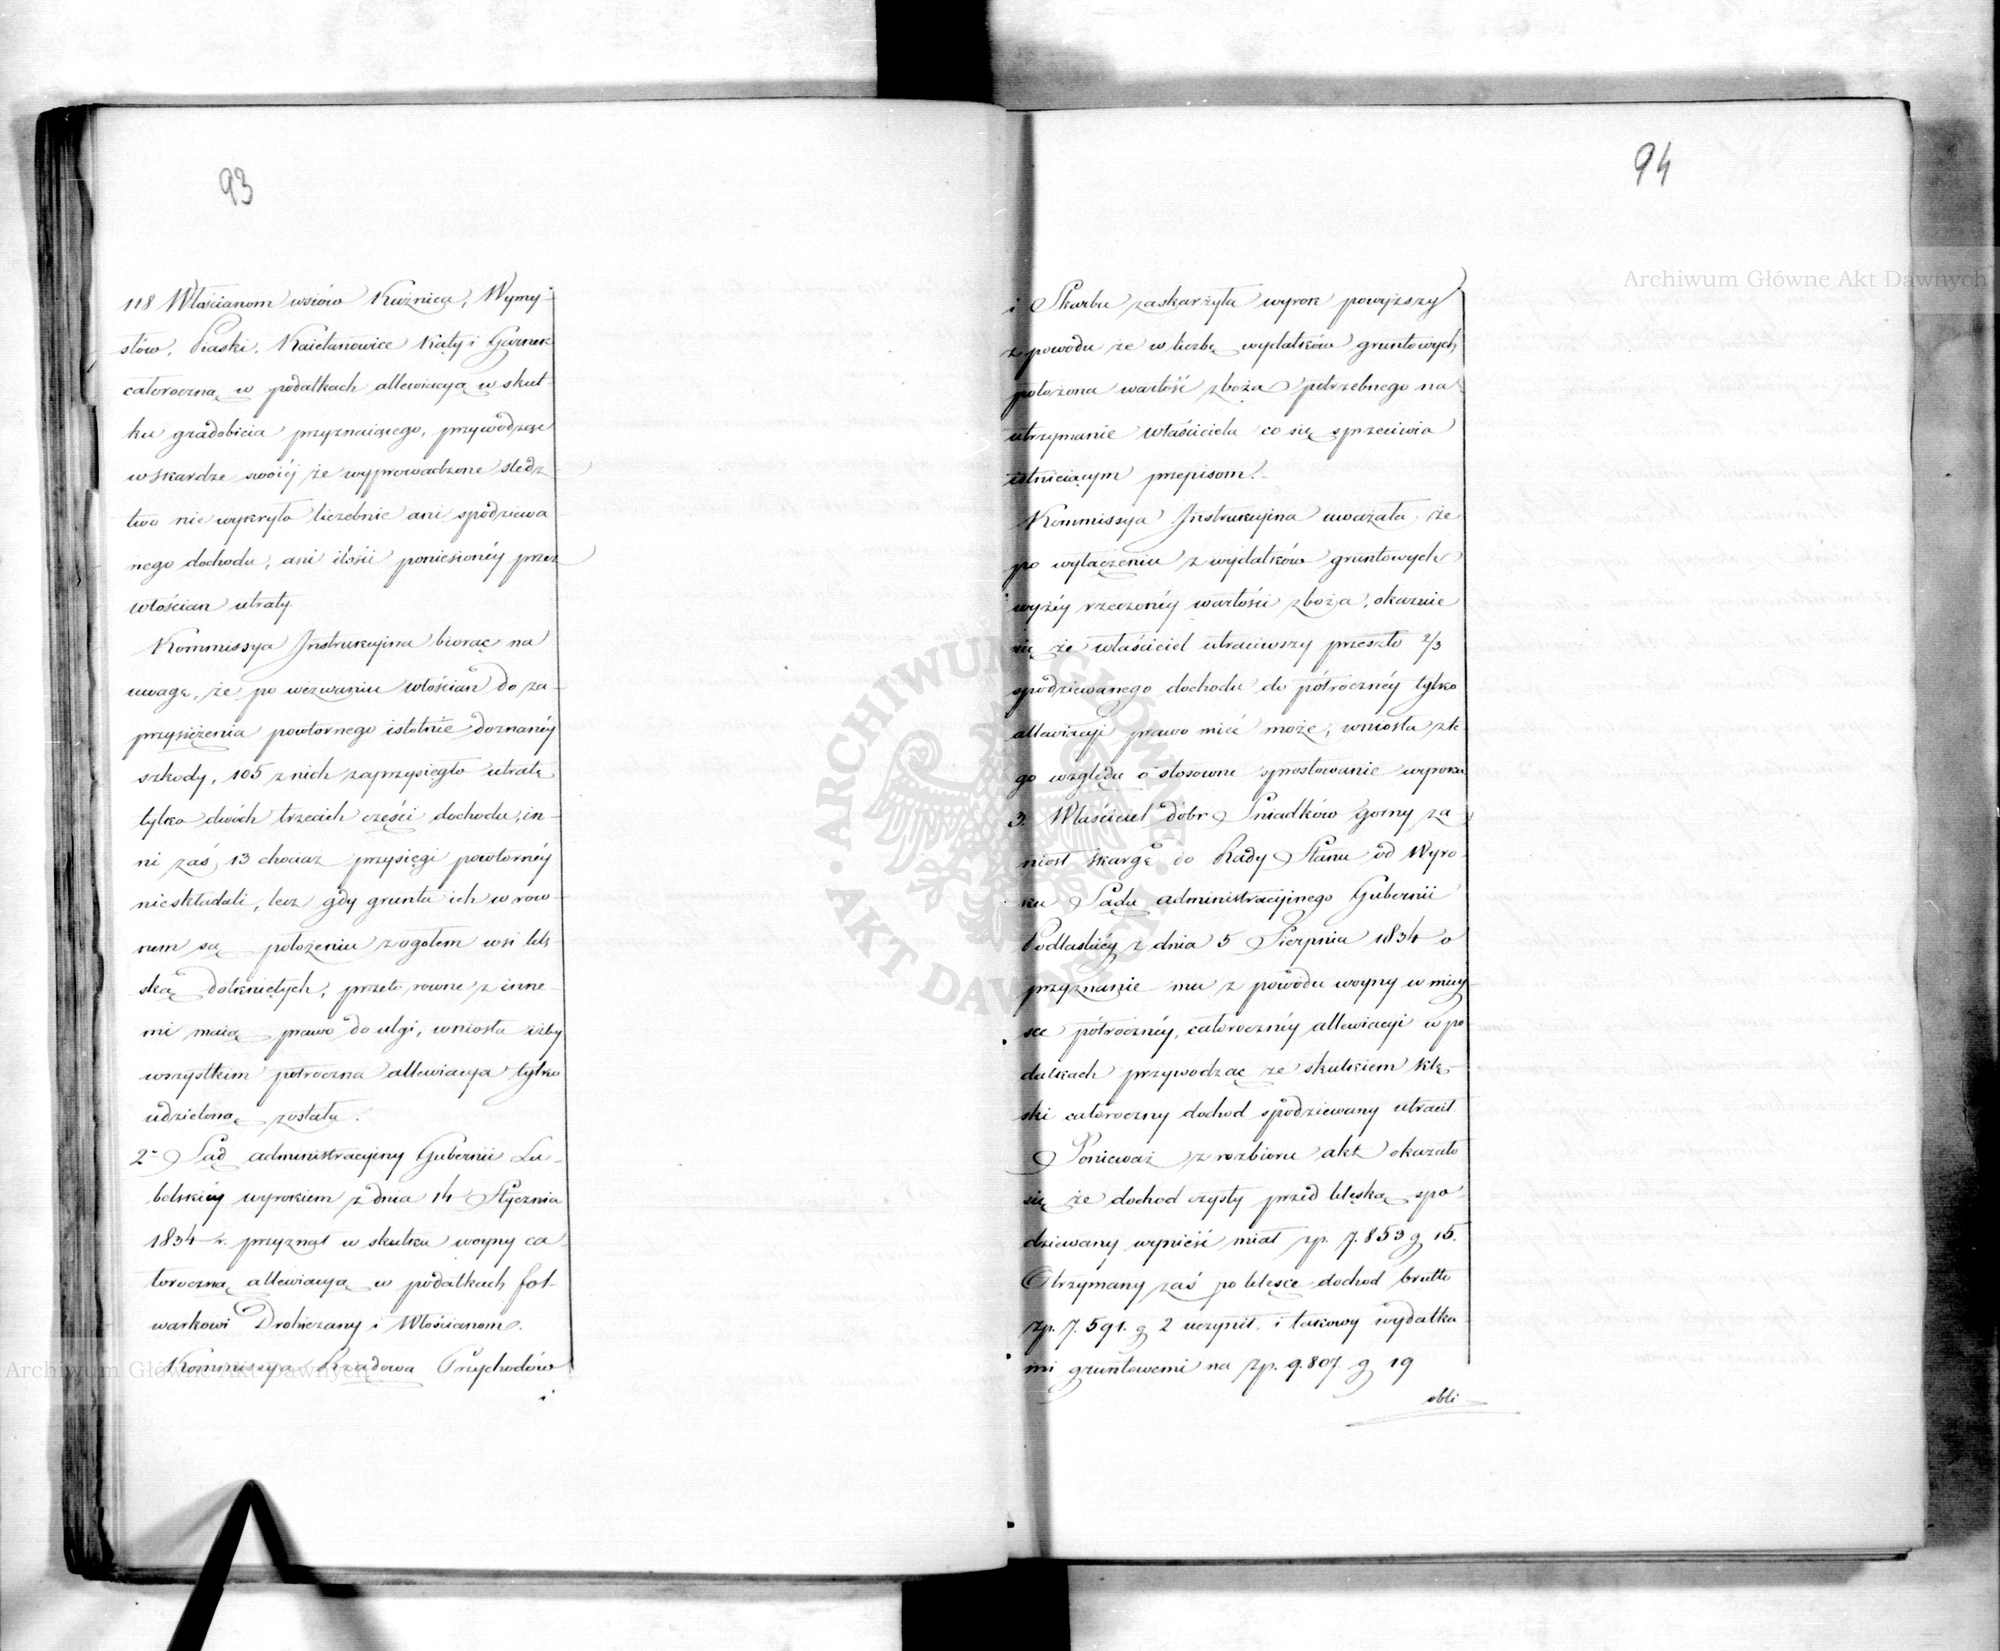 93
118 Włościanom wsiów Kuźnica, Wymy-
słów, Piaski, Kaietanowice Kąty i Garnek
całoroczną w podatkach allewiacyą w skut-
ku gradobicia przyznaiącego, przywodząc
w skardze swoiéj że wyprowadzone śledz
two nie wykryło liczebnie ani spodziewa
nego dochodu, ani ilości poniesionéy przez
włościan utraty.
Kommissya Instrukcyina biorąc na
uwagę, że po wezwaniu włościan do za-
przysiężenia powtornego istotnie doznanéy
szkody, 105 z nich zaprzysięgło utratę
tylko dwóch trzecich części dochodu, in-
ni zaś, 13 chociaz przysięgi powtornéy
nieskładali, lecz gdy grunta ich w row-
nem są położeniu z ogołem wsi klę-
ską dotkniętych, przeto rowne z inne-
mi maią prawo do ulgi, wniosła iżby
wszystkim połroczna allewiacya tylko
udzieloną została.
2- Sąd administracyiny Gubernii Lu-
belskiéy wyrokiem z dnia 14 Stycznia
1834 r. przyznał w skutku woyny ca-
łoroczną allewiacyą w podatkach fol-
warkowi Drohiczany i Włościanom.
Kommissya Rządowa Przychodów
i
94
i Skarbu zaskarżyła wyrok powyższy
z powodu że w liczbę wydatków gruntowych
położona wartość zboża potrzebnego na
utrzymanie właściciela co się sprzeciwia
istnieiącym przepisom.
Kommissya Instrukcyina uważała, że
po wyłączeniu z wydatków gruntowych
wyżéy rzeczonéy wartości zboża, okazuie
się że właściciel utraciwszy przeszło 2/3
spodziewanego dochodu do półrocznéy tylko
allewiacyi prawo mieć może, wniosła zte
go względu o stosowne sprostowanie wyroku
3. Właściciel dobr Sniadków gorny za
niosł skargę do Rady Stanu od Wyro-
ku Sądu administracyjnego Gubernii
Podlaskiéy z dnia 5 Sierpnia 1834 o
przyznanie mu z powodu woyny w miey-
sce półrocznéy, całorocznéy allewiacyi w po
datkach przywodząc ze skutkiem klę-
ski całoroczny dochod spodziewany utracił.
Ponieważ z rozbioru akt okazało
się że dochod czysty przed klęską spo-
dziewany wynieść miał zp. 7.853 g 15.
Otrzymany zaś po klęsce dochod brutto
zp. 7.591. g 2 uczynił. i takowy wydatka
mi gruntowemi na zp. 9.807. g 19
obli
Archiwum Główne Akt Dawnych
Archiwum Główne Akt Dawnych
ARCHIWUM GŁÓWNE AKT DAWNYCH